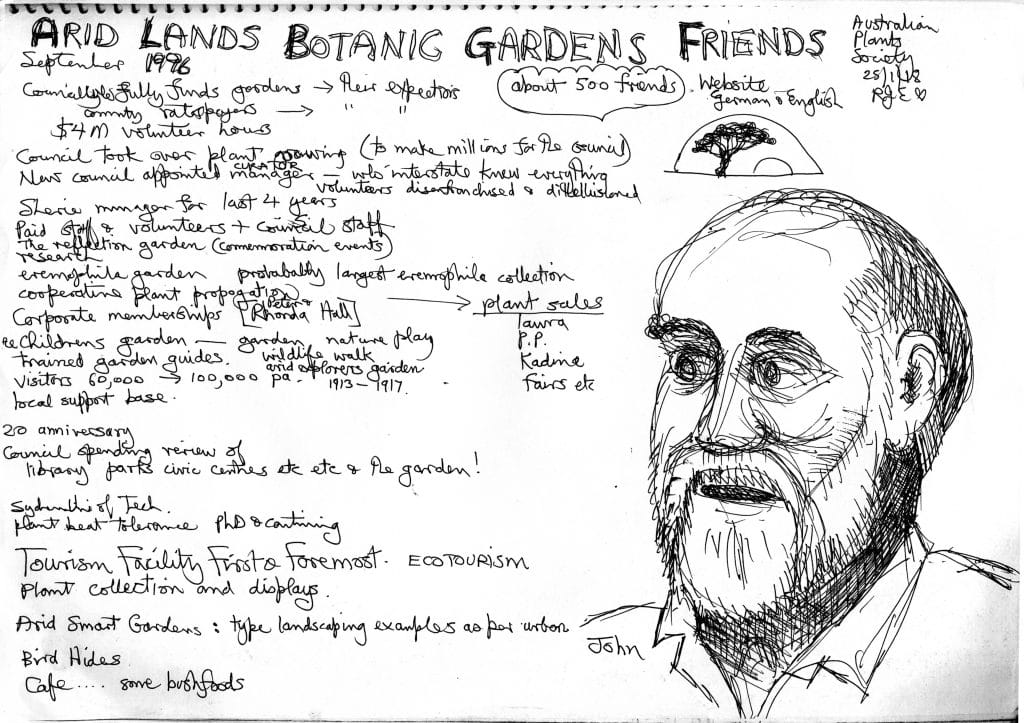 ARID LANDS BOTANIC GARDENS FRIENDS
Australian
Plants
Society
25/1/18
RJE
September 1996
about 500 friends
Website
German & English
fully funds gardens → their
ratepayers → " "
$4M volunteer hours
Council took over plant growing (to make millions for the council)
New council appointed manager CURATOR – who interstate knew everything
volunteers disenfranchised &
Sherie manager for last 4 years
Paid staff & volunteers + council staff
The reflection garden (commemoration events)
research
eremophila garden probabably largest eremophila collection
cooperative plant propogation → plant sales
Corporate memberships [Peter & Rhonda Hall]
laura
P.P.
Kadina
Fairs etc
childrens garden — garden nature play
trained garden guides. wildlife walk
arid explorers garden
Visitors 60,000 → 100,000 pa. 1913–1917
local support base.
20 anniversary
Council spending review of
library parks civic centres etc etc & the garden!
of Tech.
plant heat tolerance PhD &
Tourism Facility First & Foremost. ECOTOURISM
Plant collection and displays.
Arid Smart Gardens : type landscaping examples as per urban
Bird Hides
Cafe .... some bushfoods
John